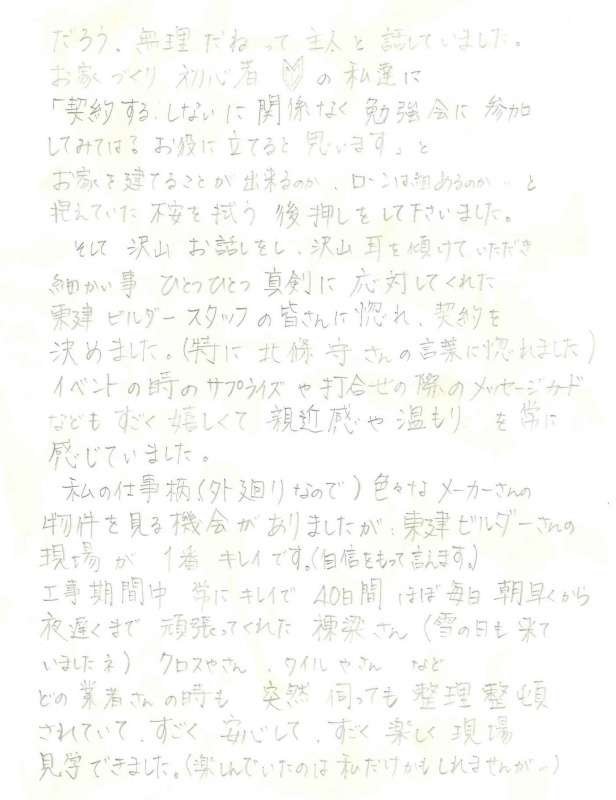 だろう、無理だねって主人と話していました。
お家づくり初心者🔰の私達に
「契約する、しないに関係なく勉強会に参加
してみては？お役に立てると思います」と
お家を建てることが出来るのか、ローンは組めるのか…と
抱えていた不安を拭う後押しをして下さいました。
そして沢山お話しをし、沢山耳を傾けていただき
細かい事ひとつひとつ真剣に応対してくれた
東建ビルダースタッフの皆さんに惚れ、契約を
決めました。(特に北條守さんの言葉に惚れました)
イベントの時のサプライズや打合せの際のメッセージカード
などもすごく嬉しくて親近感や温もりを常に
感じていました。
私の仕事柄(外廻りなので)色々なメーカーさんの
物件を見る機会がありましたが、東建ビルダーさんの
現場が1番キレイです。(自信をもって言えます。)
工事期間中常にキレイで40日間ほぼ毎日朝早くから
夜遅くまで頑張ってくれた棟梁さん(雪の日も来て
いましたネ)クロスやさん、タイルやさんなど
どの業者さんの時も突然伺っても整理整頓
されていて、すごく安心して、すごく楽しく現場
見学できました。(楽しんでいたのは私だけかもしれませんが…)